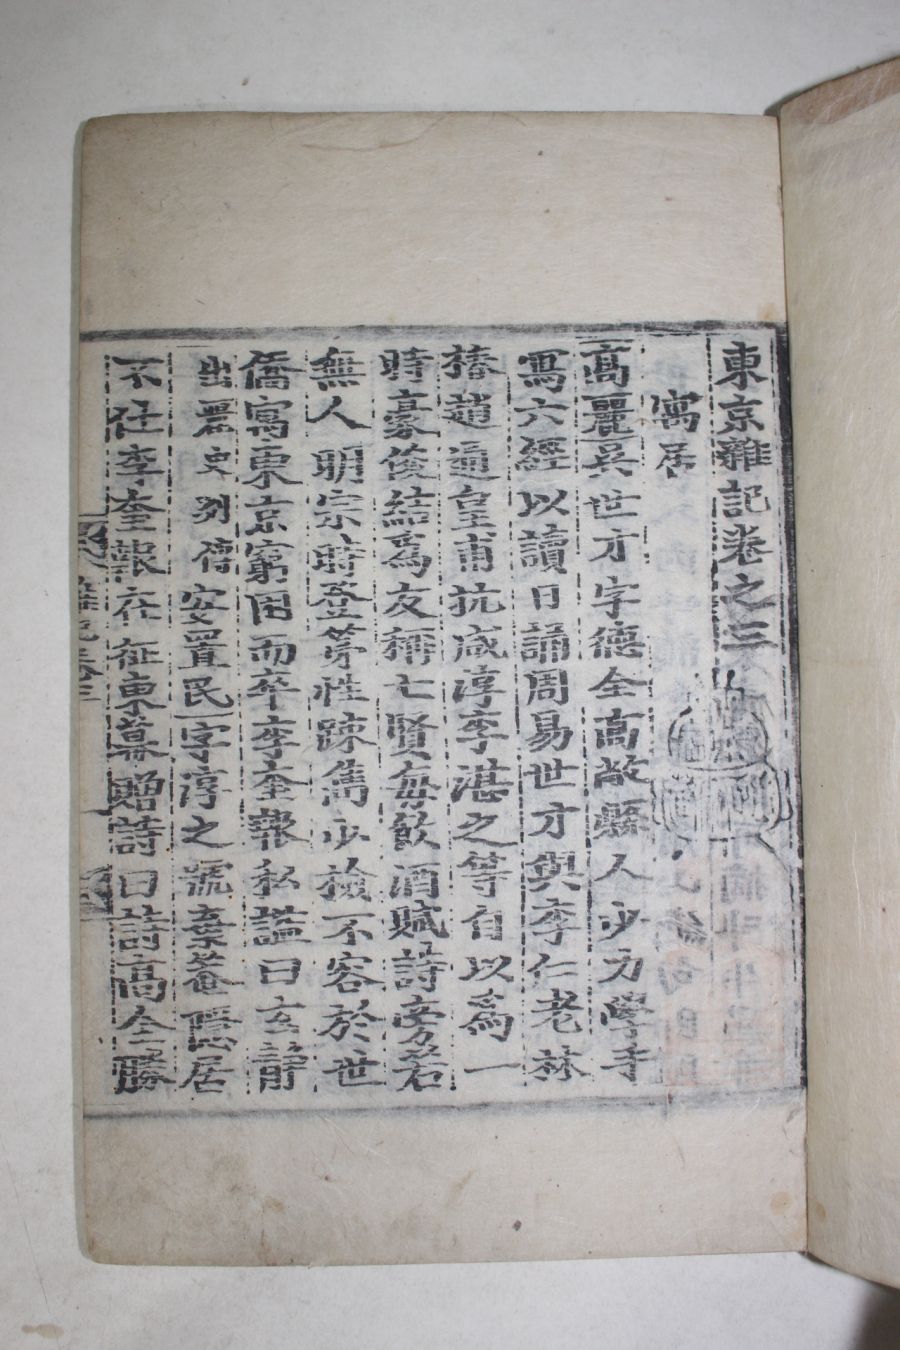 東京雜記卷之三
寓居
高麗吳世才字德全高敞縣人少力學手
寫六經以讀日誦周易世才與李仁老林
椿趙通皇甫抗咸淳李湛之等自以爲一
時豪俊結爲友稱七賢每飮酒賦詩旁若
無人明宗時登第性踈雋少檢不容於世
僑寓東京窮困而卒李奎報私謚曰玄靜
出麗史列傳安置民字淳之號棄菴隱居
不仕李奎報在征東幕贈詩曰詩高全勝